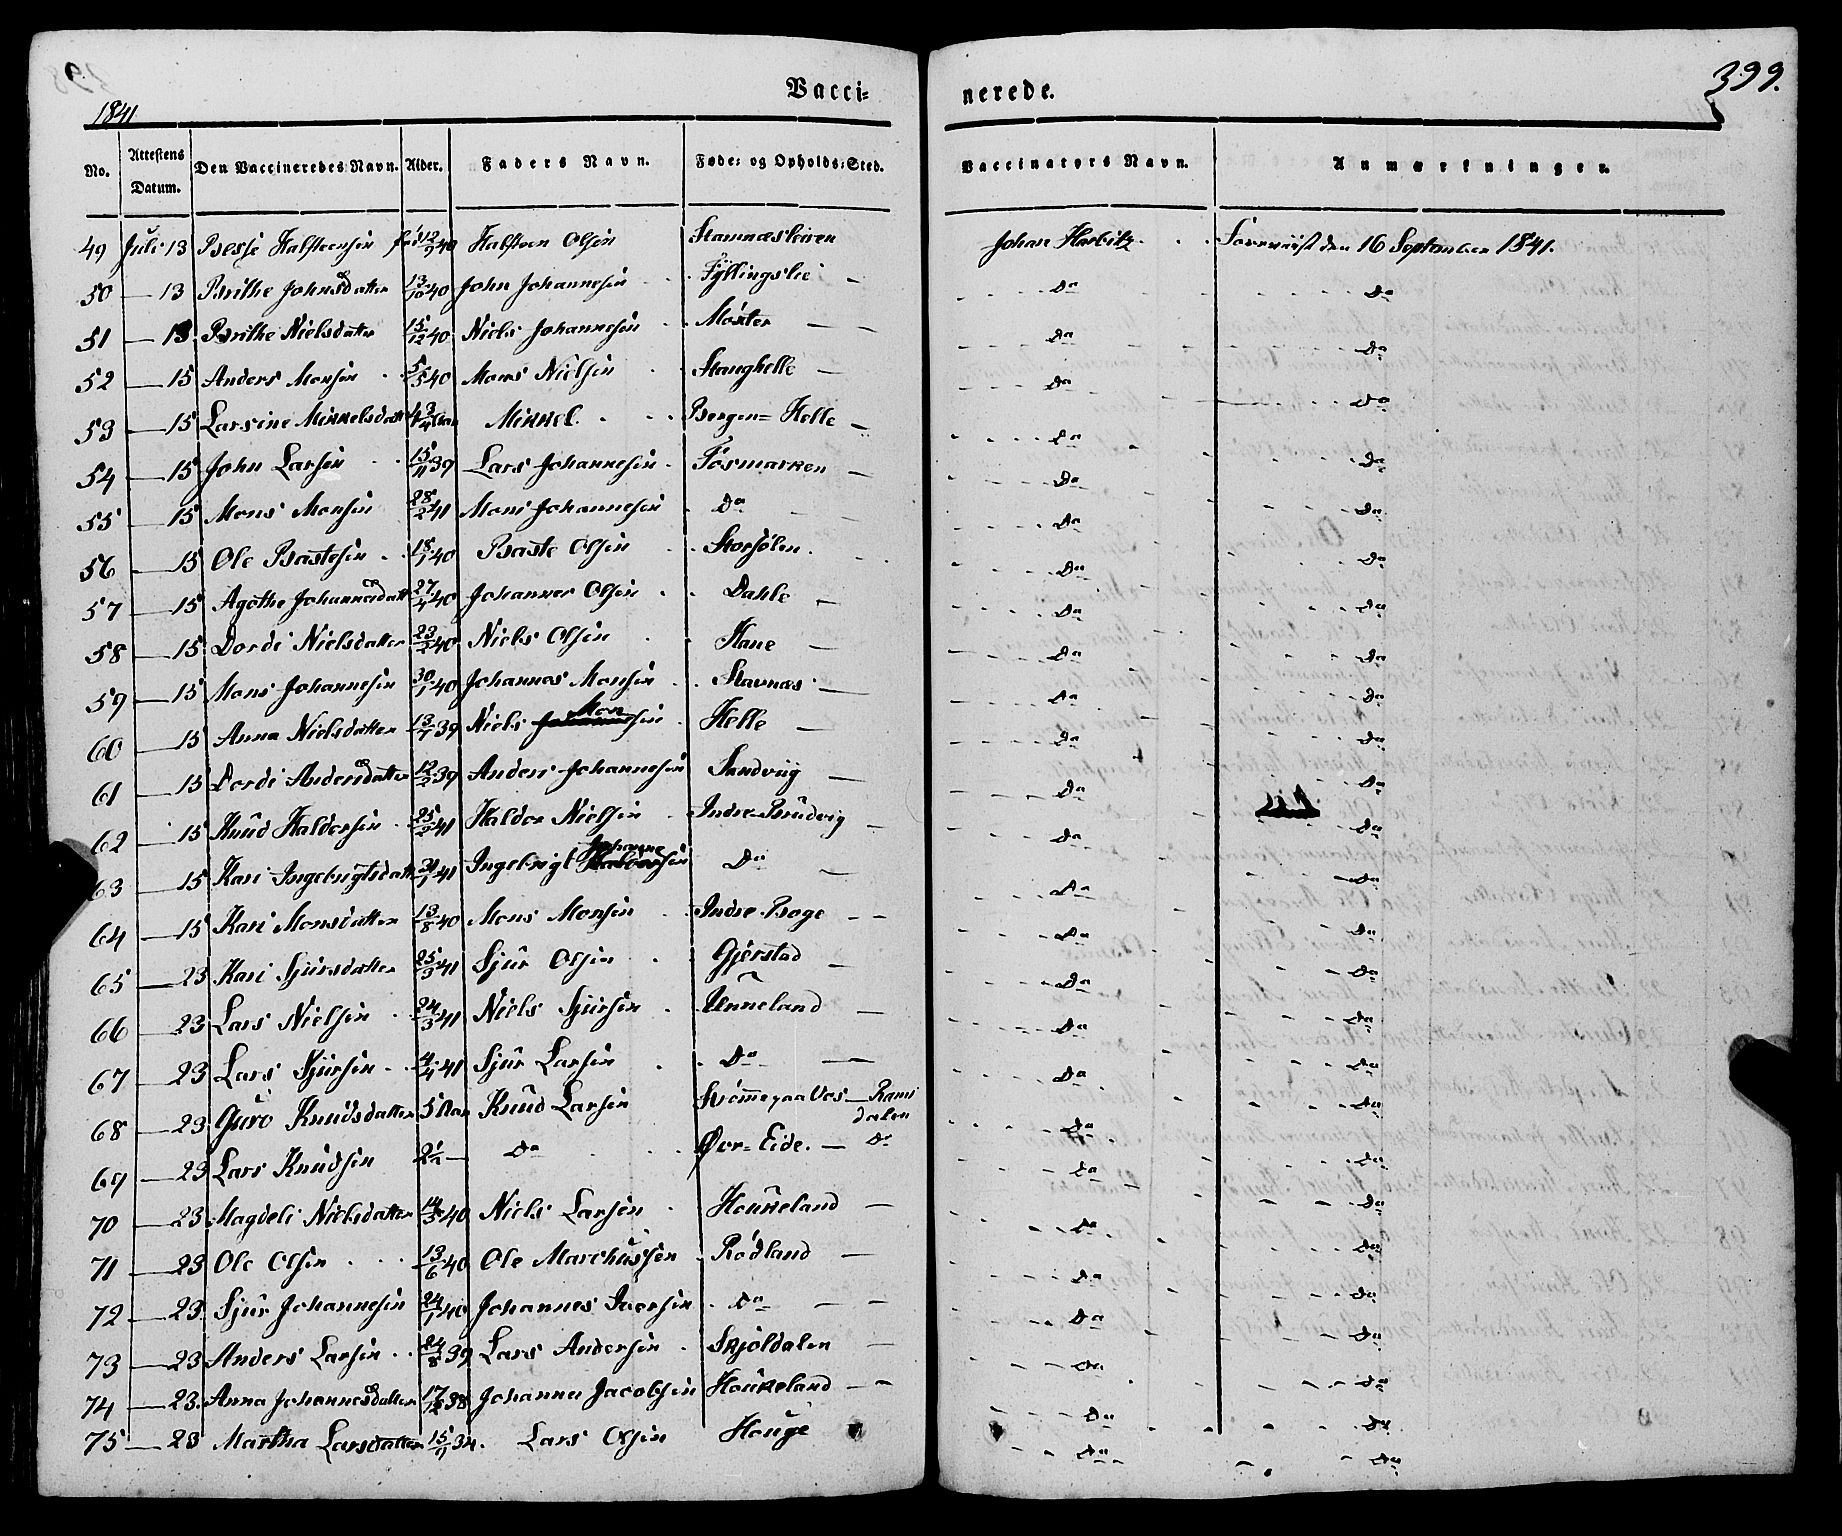 Vacci= nerede. 399.
1841
No. Attestens Datum. Den Vaccineredes Navn. Alder. Faders Navn. Føde= og Opholds=Sted. Vaccinators Navn. Anmærkninger.
49 Juli 13 Halsteensen 12/9 40 Halsteen Olsen Stamnæsleiren Johan Herbitz den 16 September 1841.
50 — 13 Brithe Johnsdatter 13/10 40 John Johannesen Fyllingslie — Do Do
51 — 13 Brithe Nielsdatter 15/12 40 Niels Johannesen Moster — Do Do
52 — 15 Anders Monsen 5/5 40 Mons Nielsen Stanghelle — Do Do
53 — 15 Larsine Mikkelsdatt Mikkel Bergen= Helle — Do Do
54 — 15 John Larsen 15/11 39 Lars Johannesen Fosmarken — Do Do
55 — 15 Mons Monsen 28/2 41 Mons Johannesen Do — Do Do
56 — 15 Ole Bastesen 18/1 40 Baste Olsen Storsølen Do Do
57 — 15 Agathe Johannesdatt 27/4 40 Johannes Olsen Dahle — Do Do
58 — 15 Dordi Nielsdatter 23/2 40 Niels Olsen Hane — Do Do
59 — 15 Mons Johannesen 30/1 40 Johannes Monsen Stavnæs — Do Do
60 — 15 Anna Nielsdatter 13/7 39 Niels Monsen Helle — Do Do
61 — 15 Dordi Andersdatter 12/2 39 Anders Johannesen Sandviig — Do Do
62 15 Knud Haldorsen 25/2 41 Haldor Nielsen Indre Brudvig — Do Do
63 — 15 Kari Ingebrigtsdatt 41 Ingebrigt Johannesen Do — Do Do
64 — 15 Kari Monsdatter 13/8 40 Mons Monsen Indre Boge — Do Do
65 — 23 Kari Sjursdatter 25/3 41 Sjur Olsen Gjerstad — Do Do
66 — 23 Lars Nielsen 24/3 41 Niels Sjursen Unneland — Do Do
67 — 23 Lars Sjursen 4/4 41 Sjur Larsen Do — Do Do
68 — 23 Guro Knudsdatter 5 Aar Knud Larsen Strømme paa Vos — Rams dalen Do Do
69 — 23 Lars Knudsen 2½ — Do Øvr= Eide. — Do Do Do
70 — 23 Magdeli Nielsdatter 14/5 40 Niels Larsen Houkeland — Do Do
71 — 23 Ole Olsen 13/6 40 Ole Marchussen Rødland — Do Do
72 — 23 Sjur Johannesen 24/1 40 Johannes Iversen Do — Do Do
73 — 23 Anders Larsen 24/8 39 Lars Andersen Skjoldalen — Do Do
74 — 23. Anna Johannesdatter 17/12 38 Johannes Jacobsen Houkeland — Do Do
75 — 23 Martha Larsdatter 15/11 34. Lars Olsen Houge Do Do